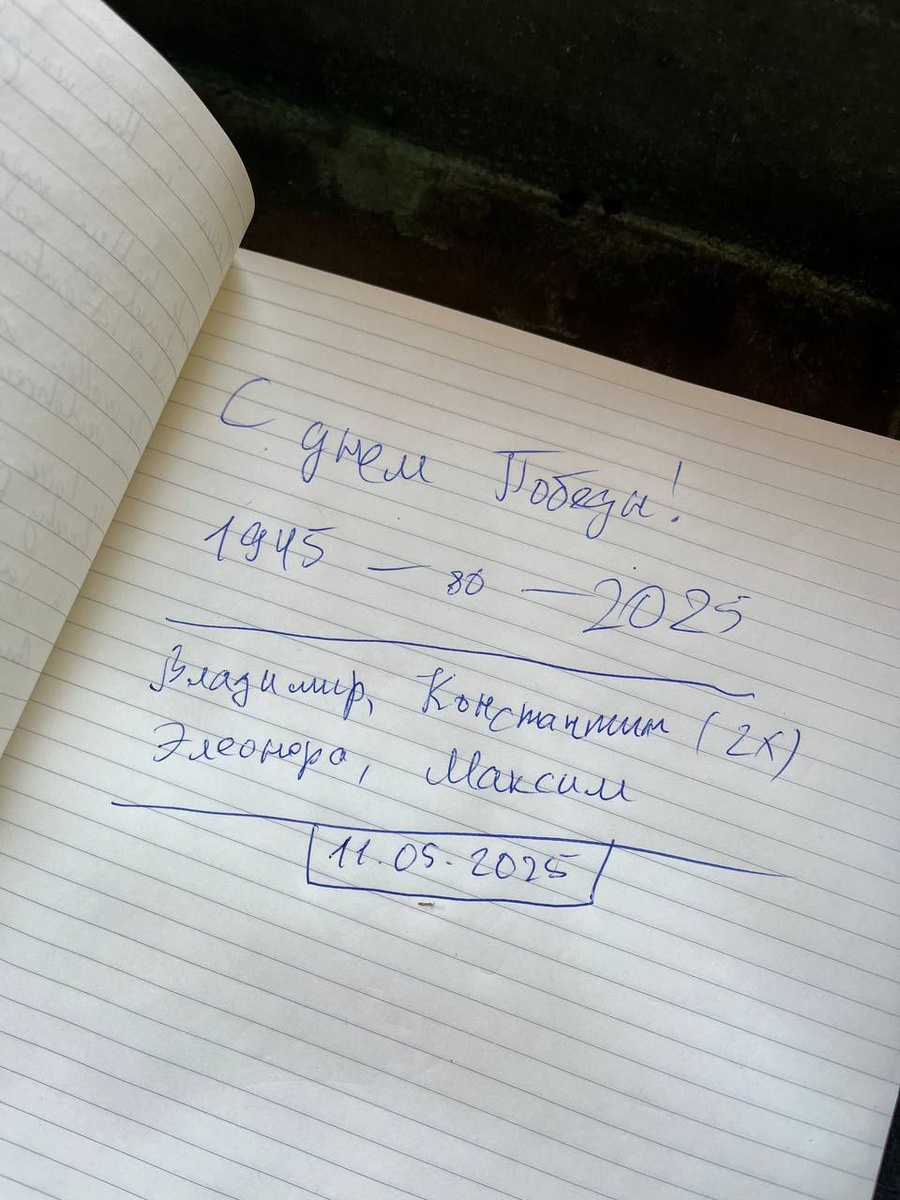 С днем Победы!
1945 — 80 — 2025
Владимир, Константин (2x)
Элеонора, Максим
11.05.2025